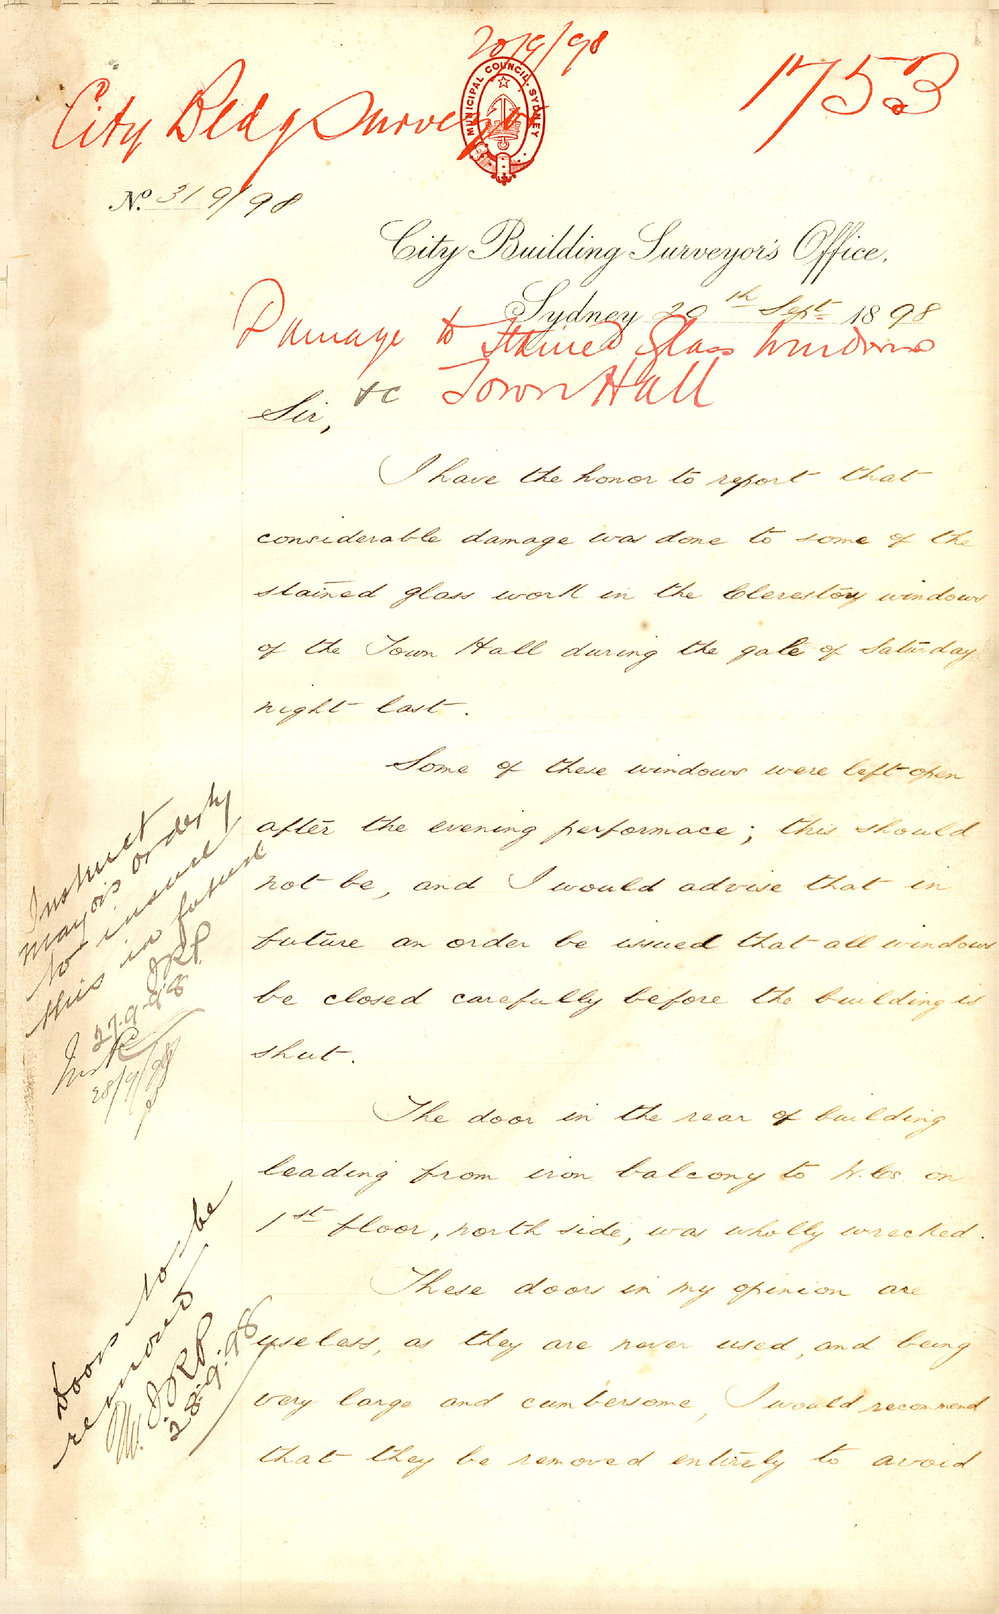 20/9/98
1753
City Bldg Surveyor
MUNICIPAL COUNCIL, SYDNEY
No. 319/98
City Building Surveyor's Office,
Sydney 20th Sept. 1898
Damage to Stained Glass Windows
&c Town Hall
Sir,
I have the honor to report that
considerable damage was done to some of the
stained glass work in the Clerestory windows
of the Town Hall during the gale of Saturday
night last.
Some of these windows were left open
after the evening performace; this should
not be, and I would advise that in
future an order be issued that all windows
be closed carefully before the building is
shut.
Instruct
Mayor's orderly
to
this in future
JRP
27.9.98
28/9/98
The door in the rear of building
leading from iron balcony to W.Cs. on
1st floor, north side, was wholly wrecked.
These doors in my opinion are
useless, as they are never used, and being
very large and cumbersome, I would recommend
that they be removed entirely to avoid
Doors to be
removed
JRP
28.9.98